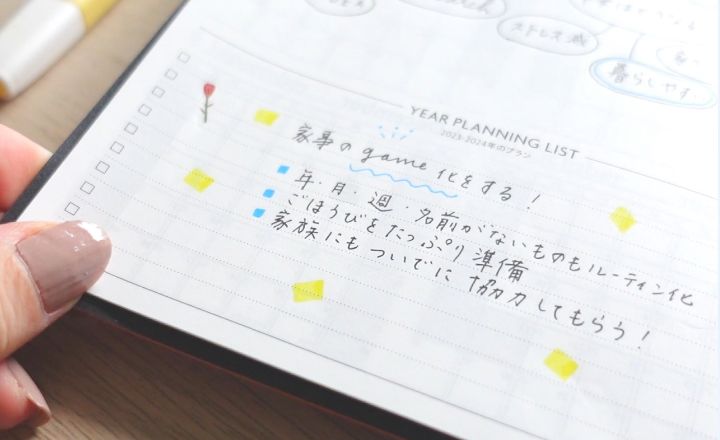 ストレス減
暮らしやす
YEAR PLANNING LIST
2023-2024年のプラン
家事のgame化をする!
年・月・週・名前がないものもルーティン化
ごほうびをたっぷり準備
家族にもついでに協力してもらう!